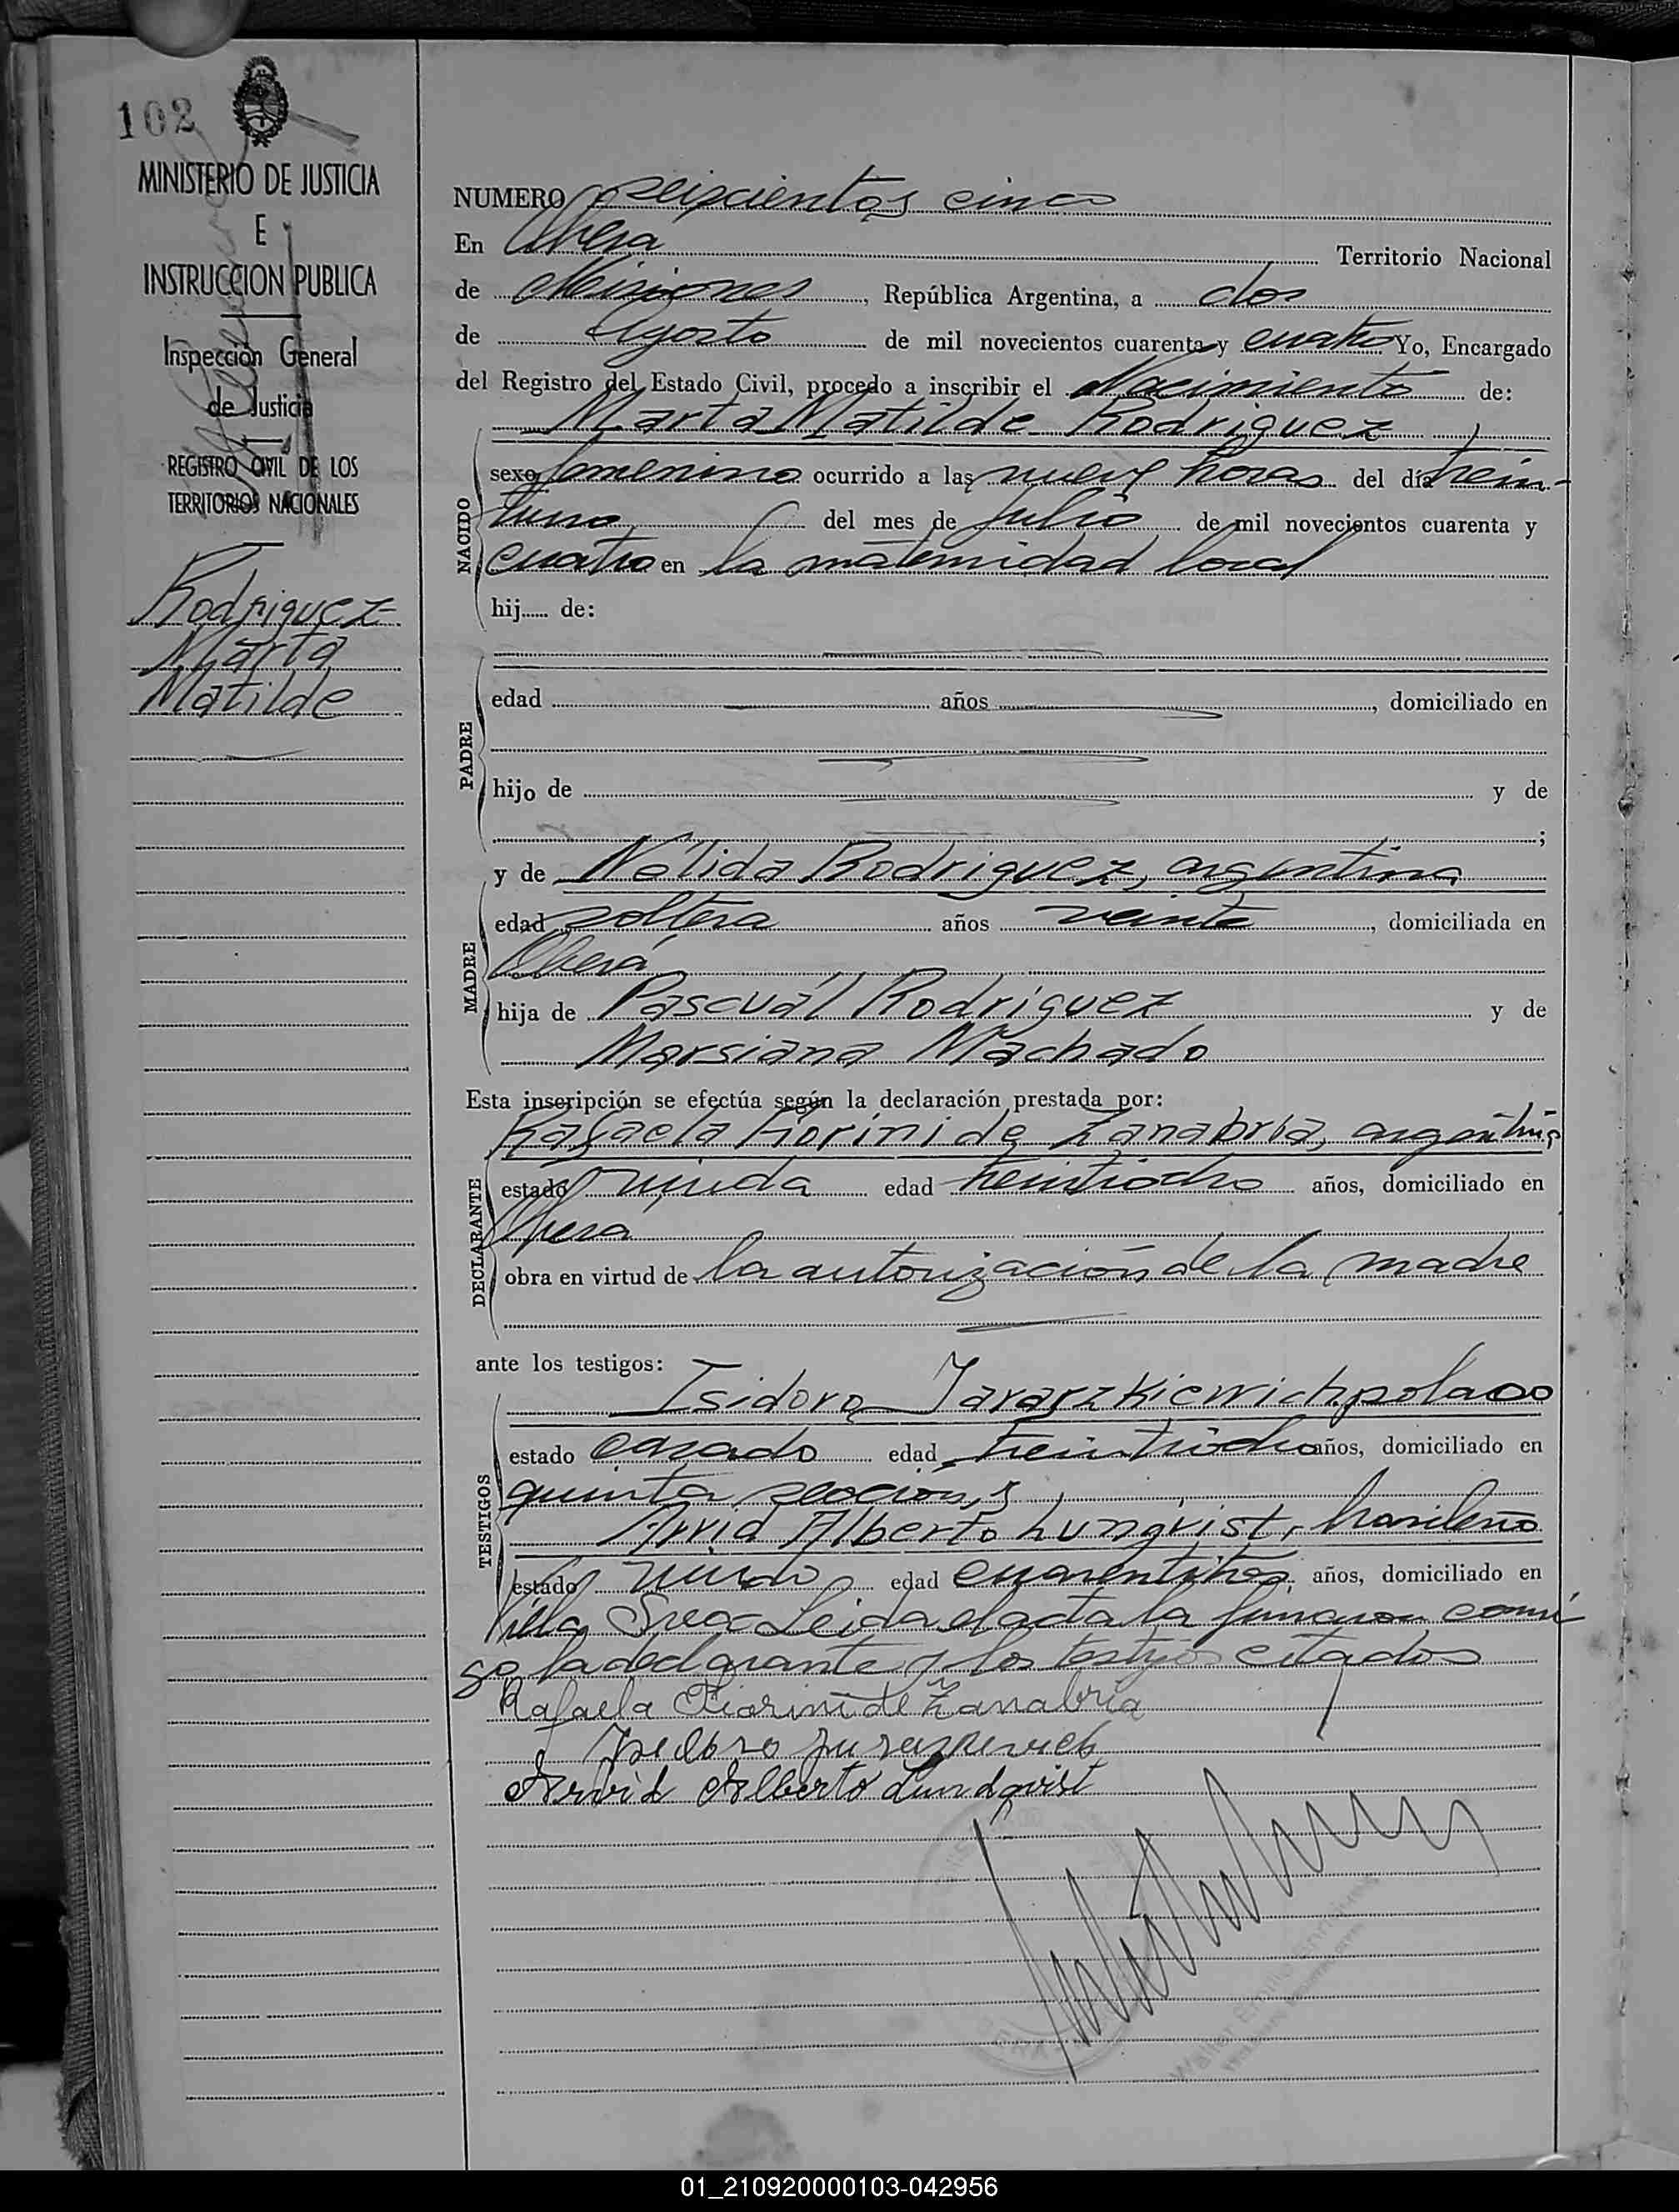 102
MINISTERIO DE JUSTICIA
E
INSTRUCCION PUBLICA
Inspección General
de Justicia
REGISTRO CIVIL DE LOS
TERRITORIOS NACIONALES
Rodriguez
Marta
Matilde
NUMERO seiscientos cinco
En Obera Territorio Nacional
de Misiones, República Argentina, a dos
de Agosto de mil novecientos cuarenta y cuatro Yo, Encargado
del Registro del Estado Civil, procedo a inscribir el Nacimiento de:
Marta Matilde Rodriguez
NACIDO
sexo femenino ocurrido a las nueve horas del día
del mes de Julio de mil novecientos cuarenta y
cuatro en la maternidad local
hij de:
PADRE
edad años , domiciliado en
hijo de y de
;
MADRE
y de Nélida Rodriguez, argentina
edad soltera años veinte , domiciliada en
Oberá
hija de Pascuál Rodriguez y de
Marsiana Machado
Esta inscripción se efectúa según la declaración prestada por:
DECLARANTE
Rafaela Fiorini de Zanabria, argentina
estado viuda edad treintiocho años, domiciliado en
Obera
obra en virtud de la autorización de la madre
ante los testigos:
TESTIGOS
Isidoro Jaraszkiewich, polaco
estado casado edad treintiocho años, domiciliado en
quinta sección, y
Arvid Alberto Lunqvist, brasileño
estado viudo edad cuarentitres, años, domiciliado en
Villa Svea Leida el acta la firmaron conmi
go la declarante y los testigos citados
Rafaela Fiorini de Zanabria
Arvid Alberto Lundqvist
01_210920000103-042956